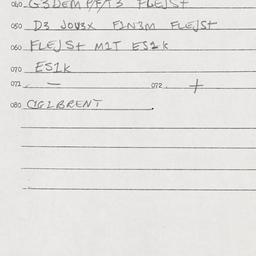 040 G3DEM P/F/T3 FLEJSt
050 D3 JOV3X F2N3M FLEJSt
060 FLEJSt M1T ES2k
070 ES1k
071 — 072 +
080 CIGLBRENT